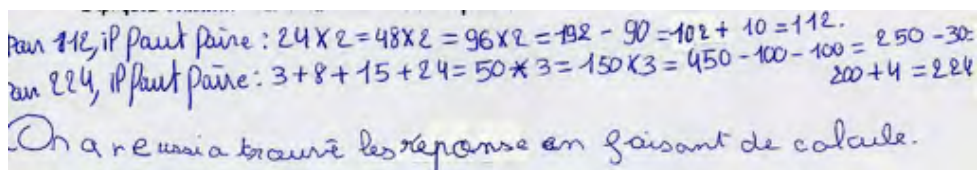 Pour 112, il faut faire : 24 × 2 = 48 × 2 = 96 × 2 = 192 - 90 = 102 + 10 = 112.
Pour 224, il faut faire : 3 + 8 + 15 + 24 = 50 × 3 = 150 × 3 = 450 - 100 - 100 = 250 - 30 =
200 + 4 = 224
On a reussi a trouvé les réponse en faisant de calcule.